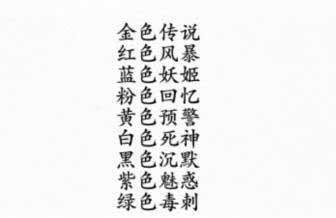 金色传说
红色风暴
蓝色妖姬
粉色回忆
黄色预警
白色死神
黑色沉默
紫色魅惑
绿色毒刺